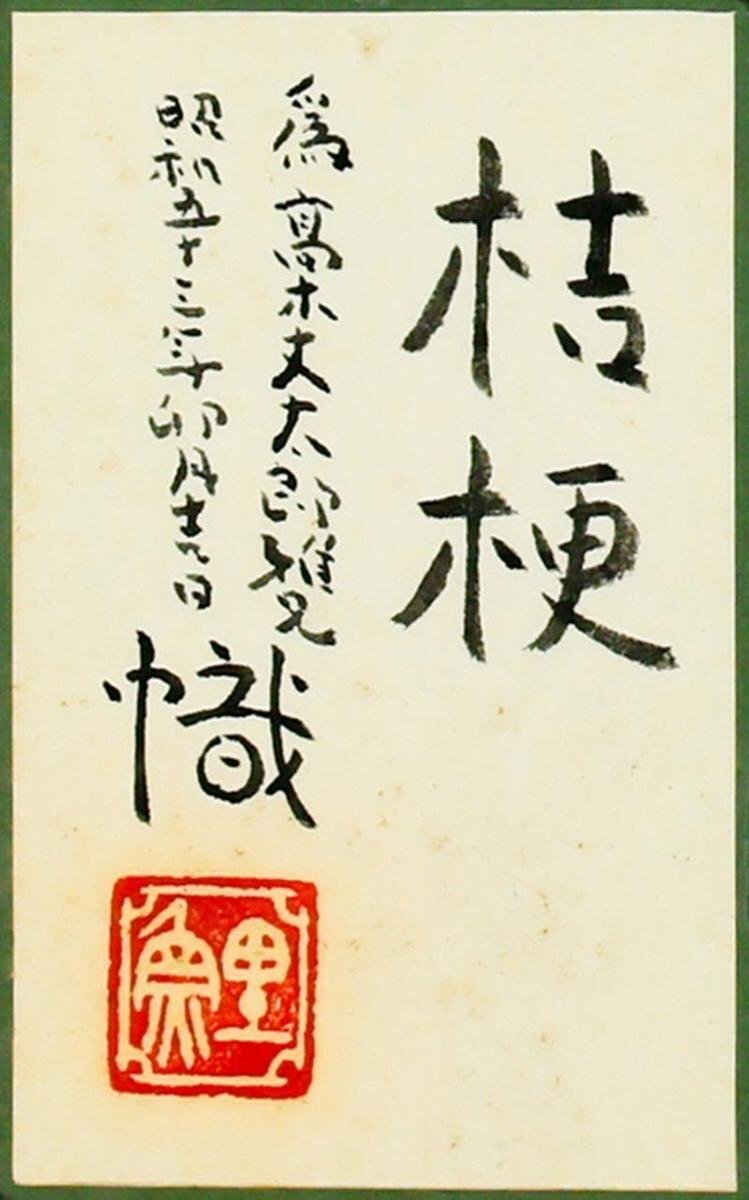 桔梗
爲髙木丈太郎雅兄
昭和五十三年卯月十九日
幟
鯉